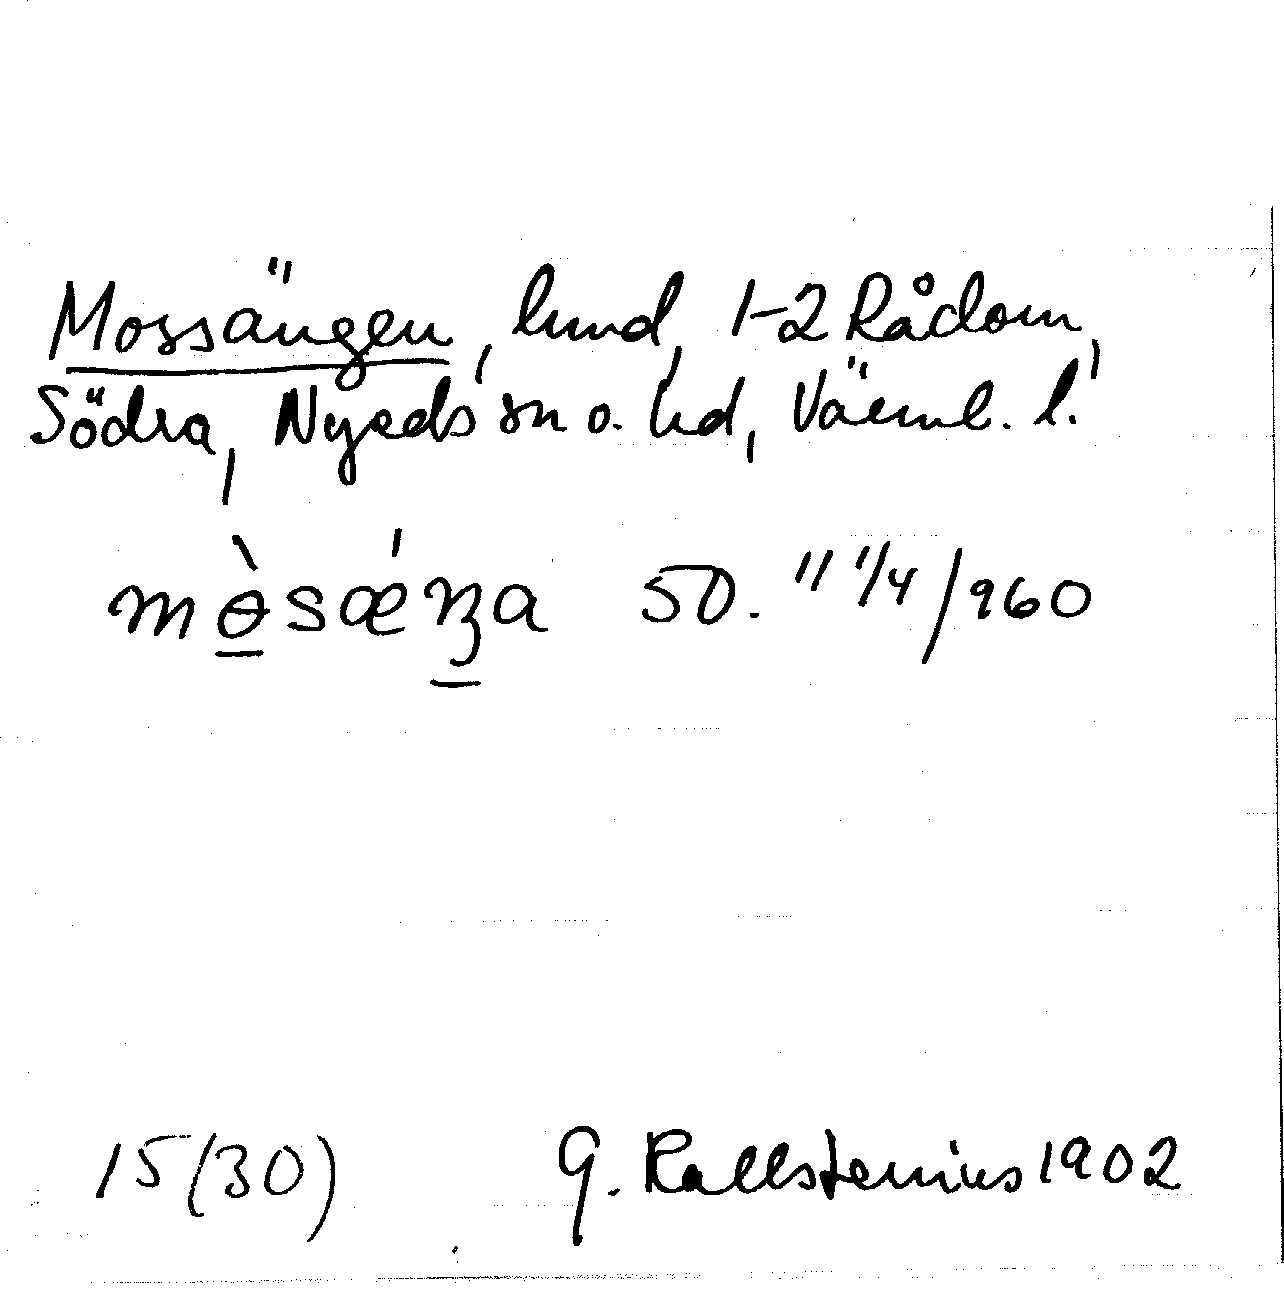 Mossängen, lund, 1-2 Rådom,
Södra, Nyeds sn o. hd, Värml. l.
mɵ̀sǽŋa SD. 11 1/4/960
15(30) G. Kallstenius 1902